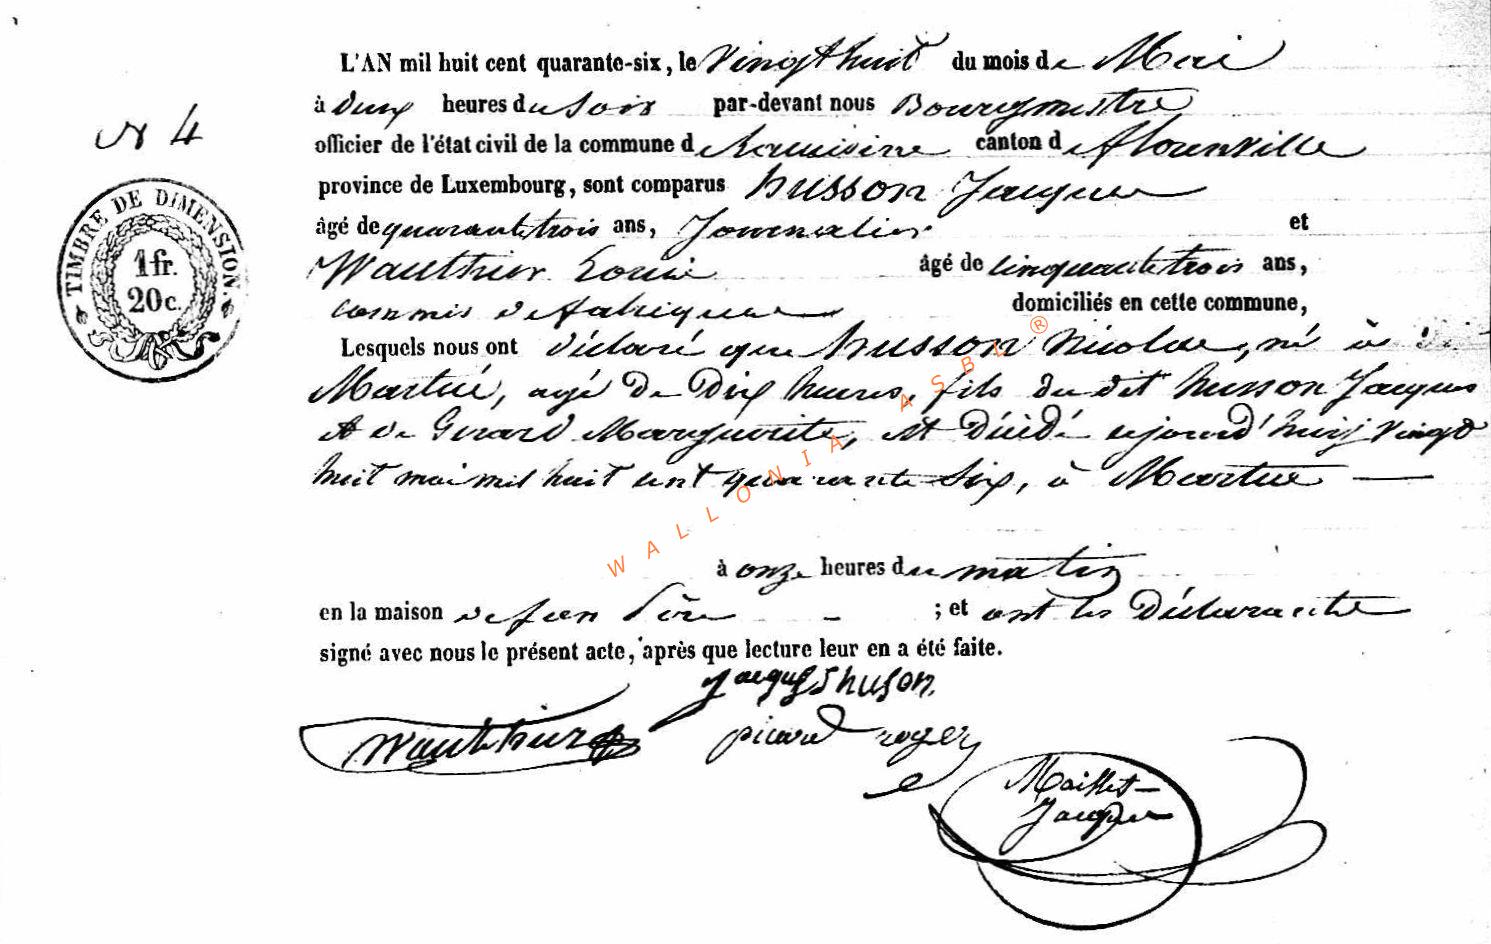 L'AN mil huit cent quarante-six, le vingt huit du mois de Mai
à deux heures du soir par-devant nous Bourgmestre
N 4
officier de l'état civil de la commune de Lacuisine canton de florenville
province de Luxembourg, sont comparus husson Jacques
âgé de quarante trois ans, Journalier et
Wauthier Louis âgé de cinquante trois ans,
commis de fabriques domiciliés en cette commune,
Lesquels nous ont déclaré que husson Nicolas, né à
Martué, agé de Dix heures, fils du dit husson Jacques
et de Girard Marguerite, est Décédé aujourd'huij vingt
huit mai mil huit cent quarante six, à Martué
à onze heures du matin
en la maison de son Père ; et ont les Déclarants
signé avec nous le présent acte, après que lecture leur en a été faite.
TIMBRE DE DIMENSION.
1 fr.
20 c.
jacques huson.
Wauthier
picard roger
Maillet
Jacques
WALLONIA ASBL ®